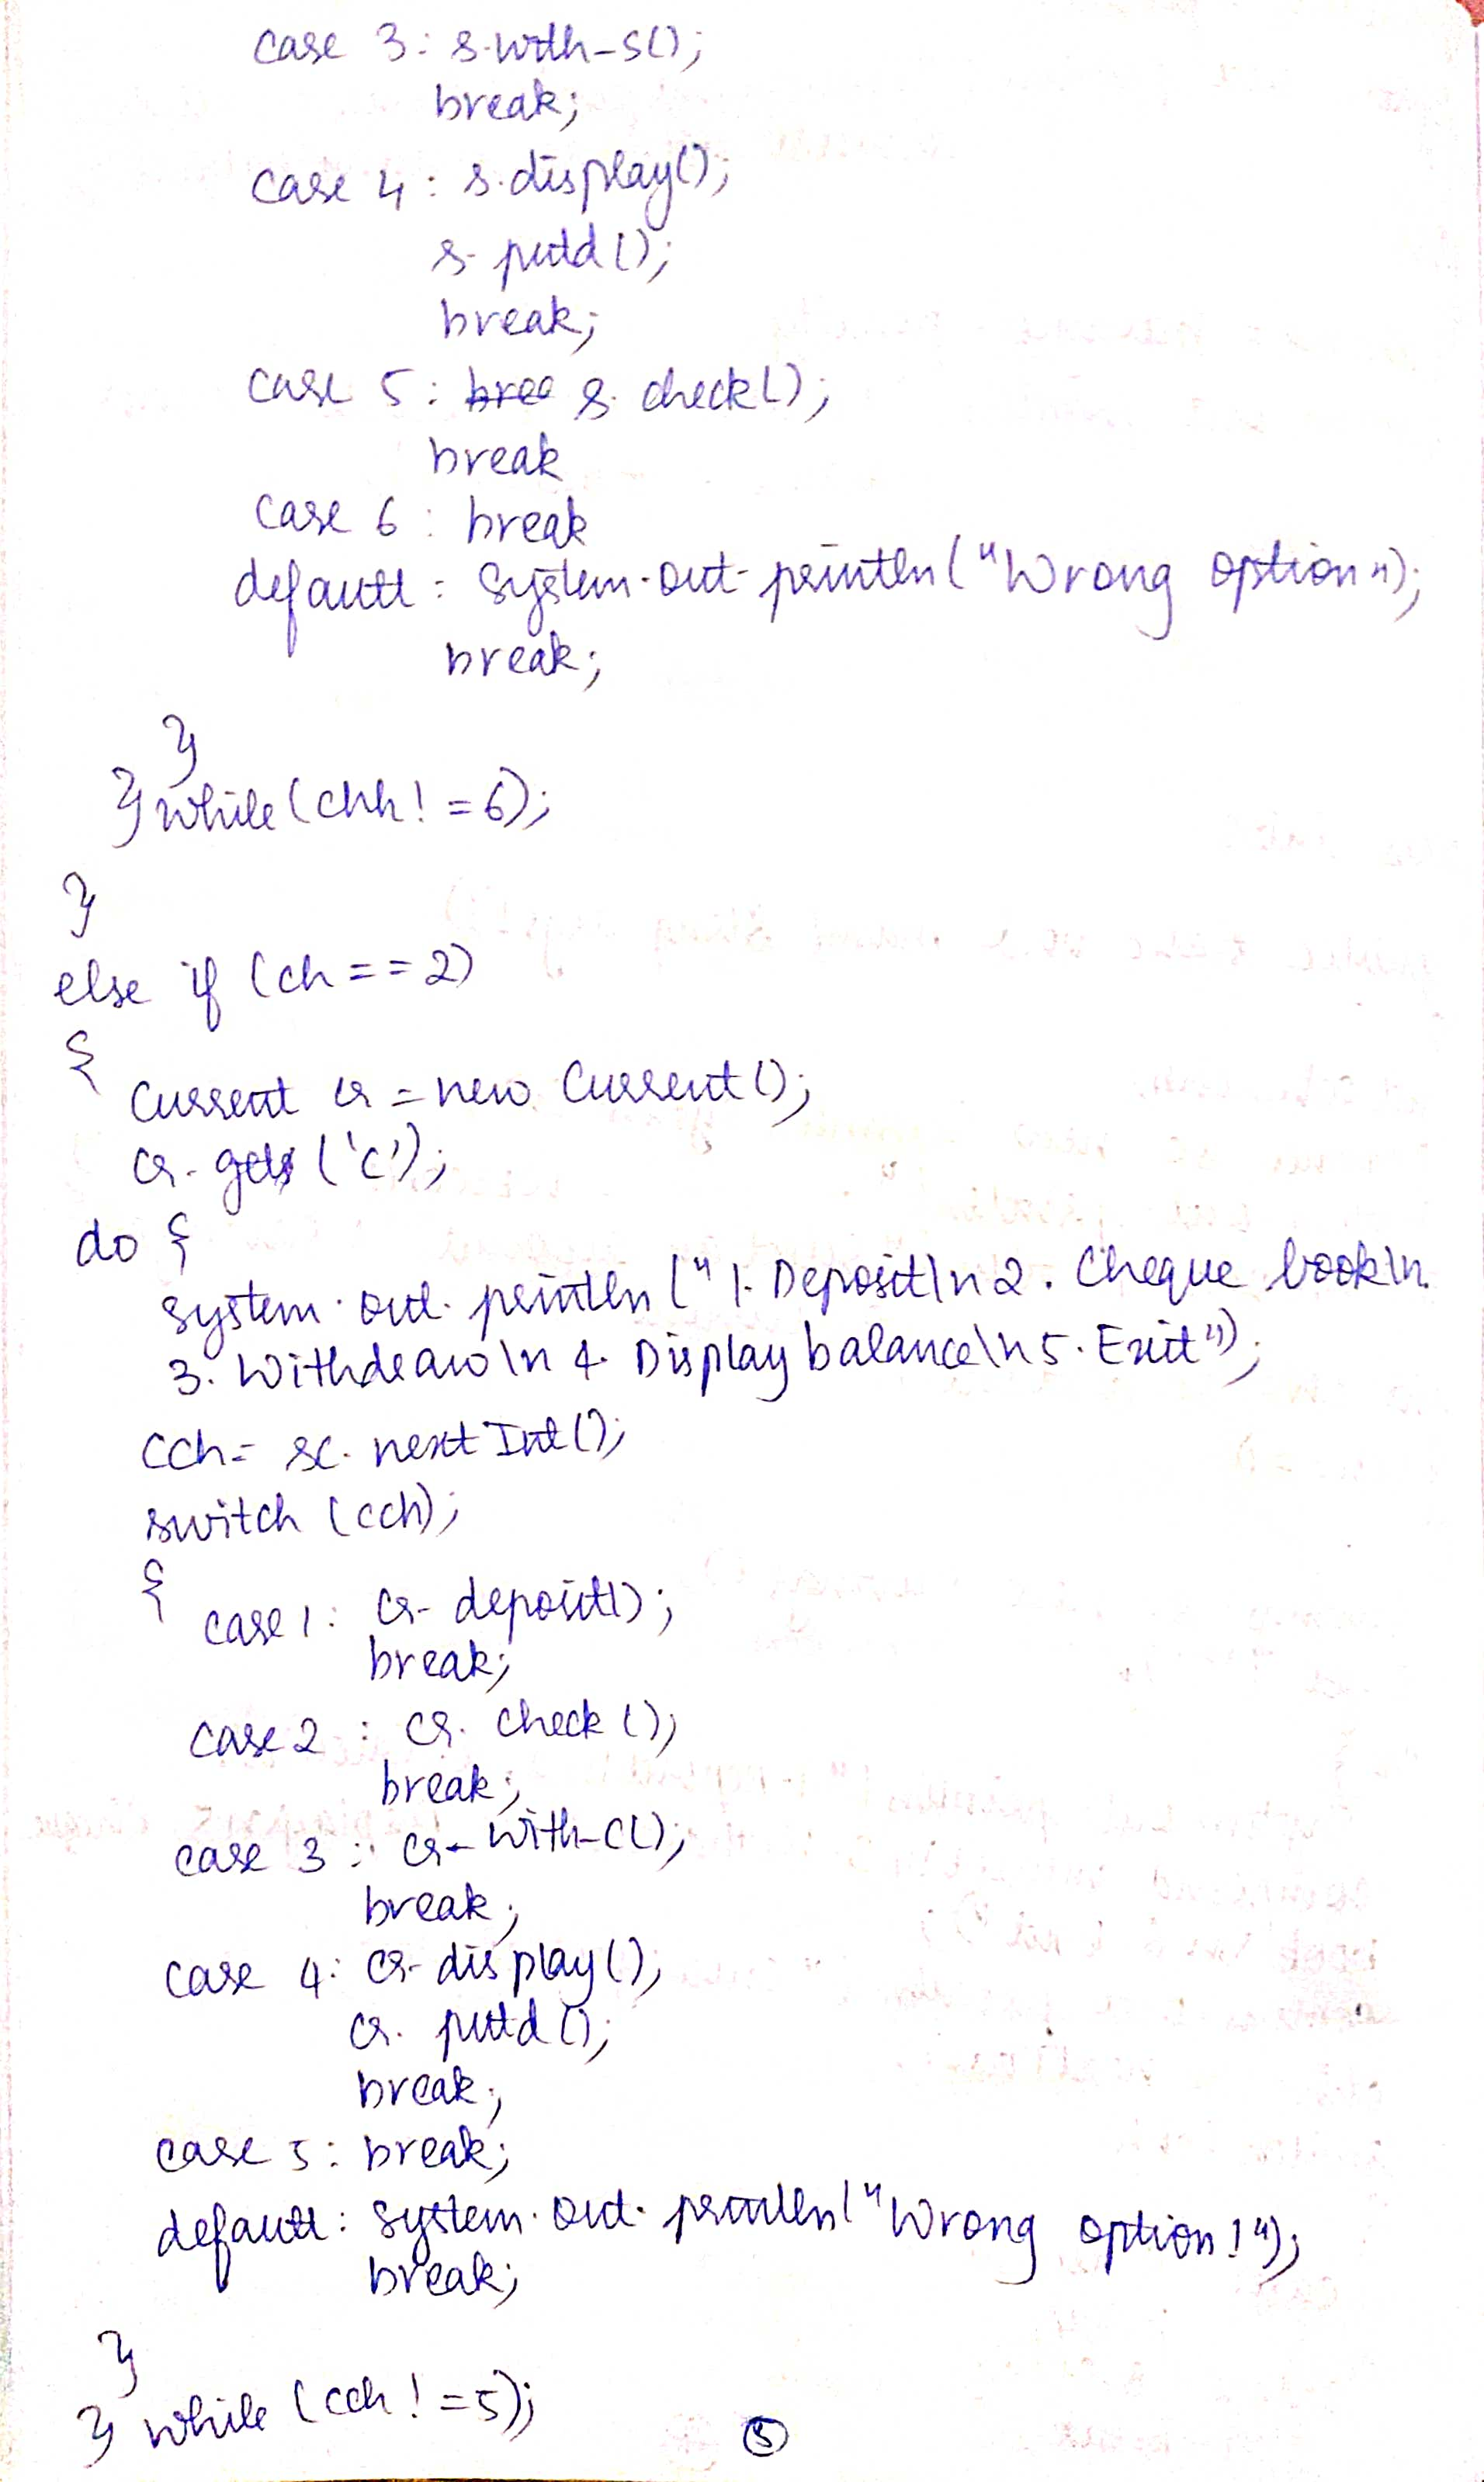 case 3: s.with-s();
break;
case 4: s.display();
s.putd();
break;
case 5: s.check();
break
case 6: break
default: System.out.println("Wrong option");
break;
}
}while(chh!=6);
}
else if (ch==2)
{
Current cr=new Current();
cr.gets('c');
do {
System.out.println("1.Deposit\n2.Cheque book\n.
3.Withdraw\n4.Display balance\n5.Exit");
cch= sc.nextInt();
switch (cch);
{
case 1: cr.deposit();
break;
case 2: cr.check();
break;
case 3: cr-with-c();
break;
case 4: cr.display();
cr.putd();
break;
case 5: break;
default: System.out.println("Wrong option!");
break;
}
} while (cch!=5);
5